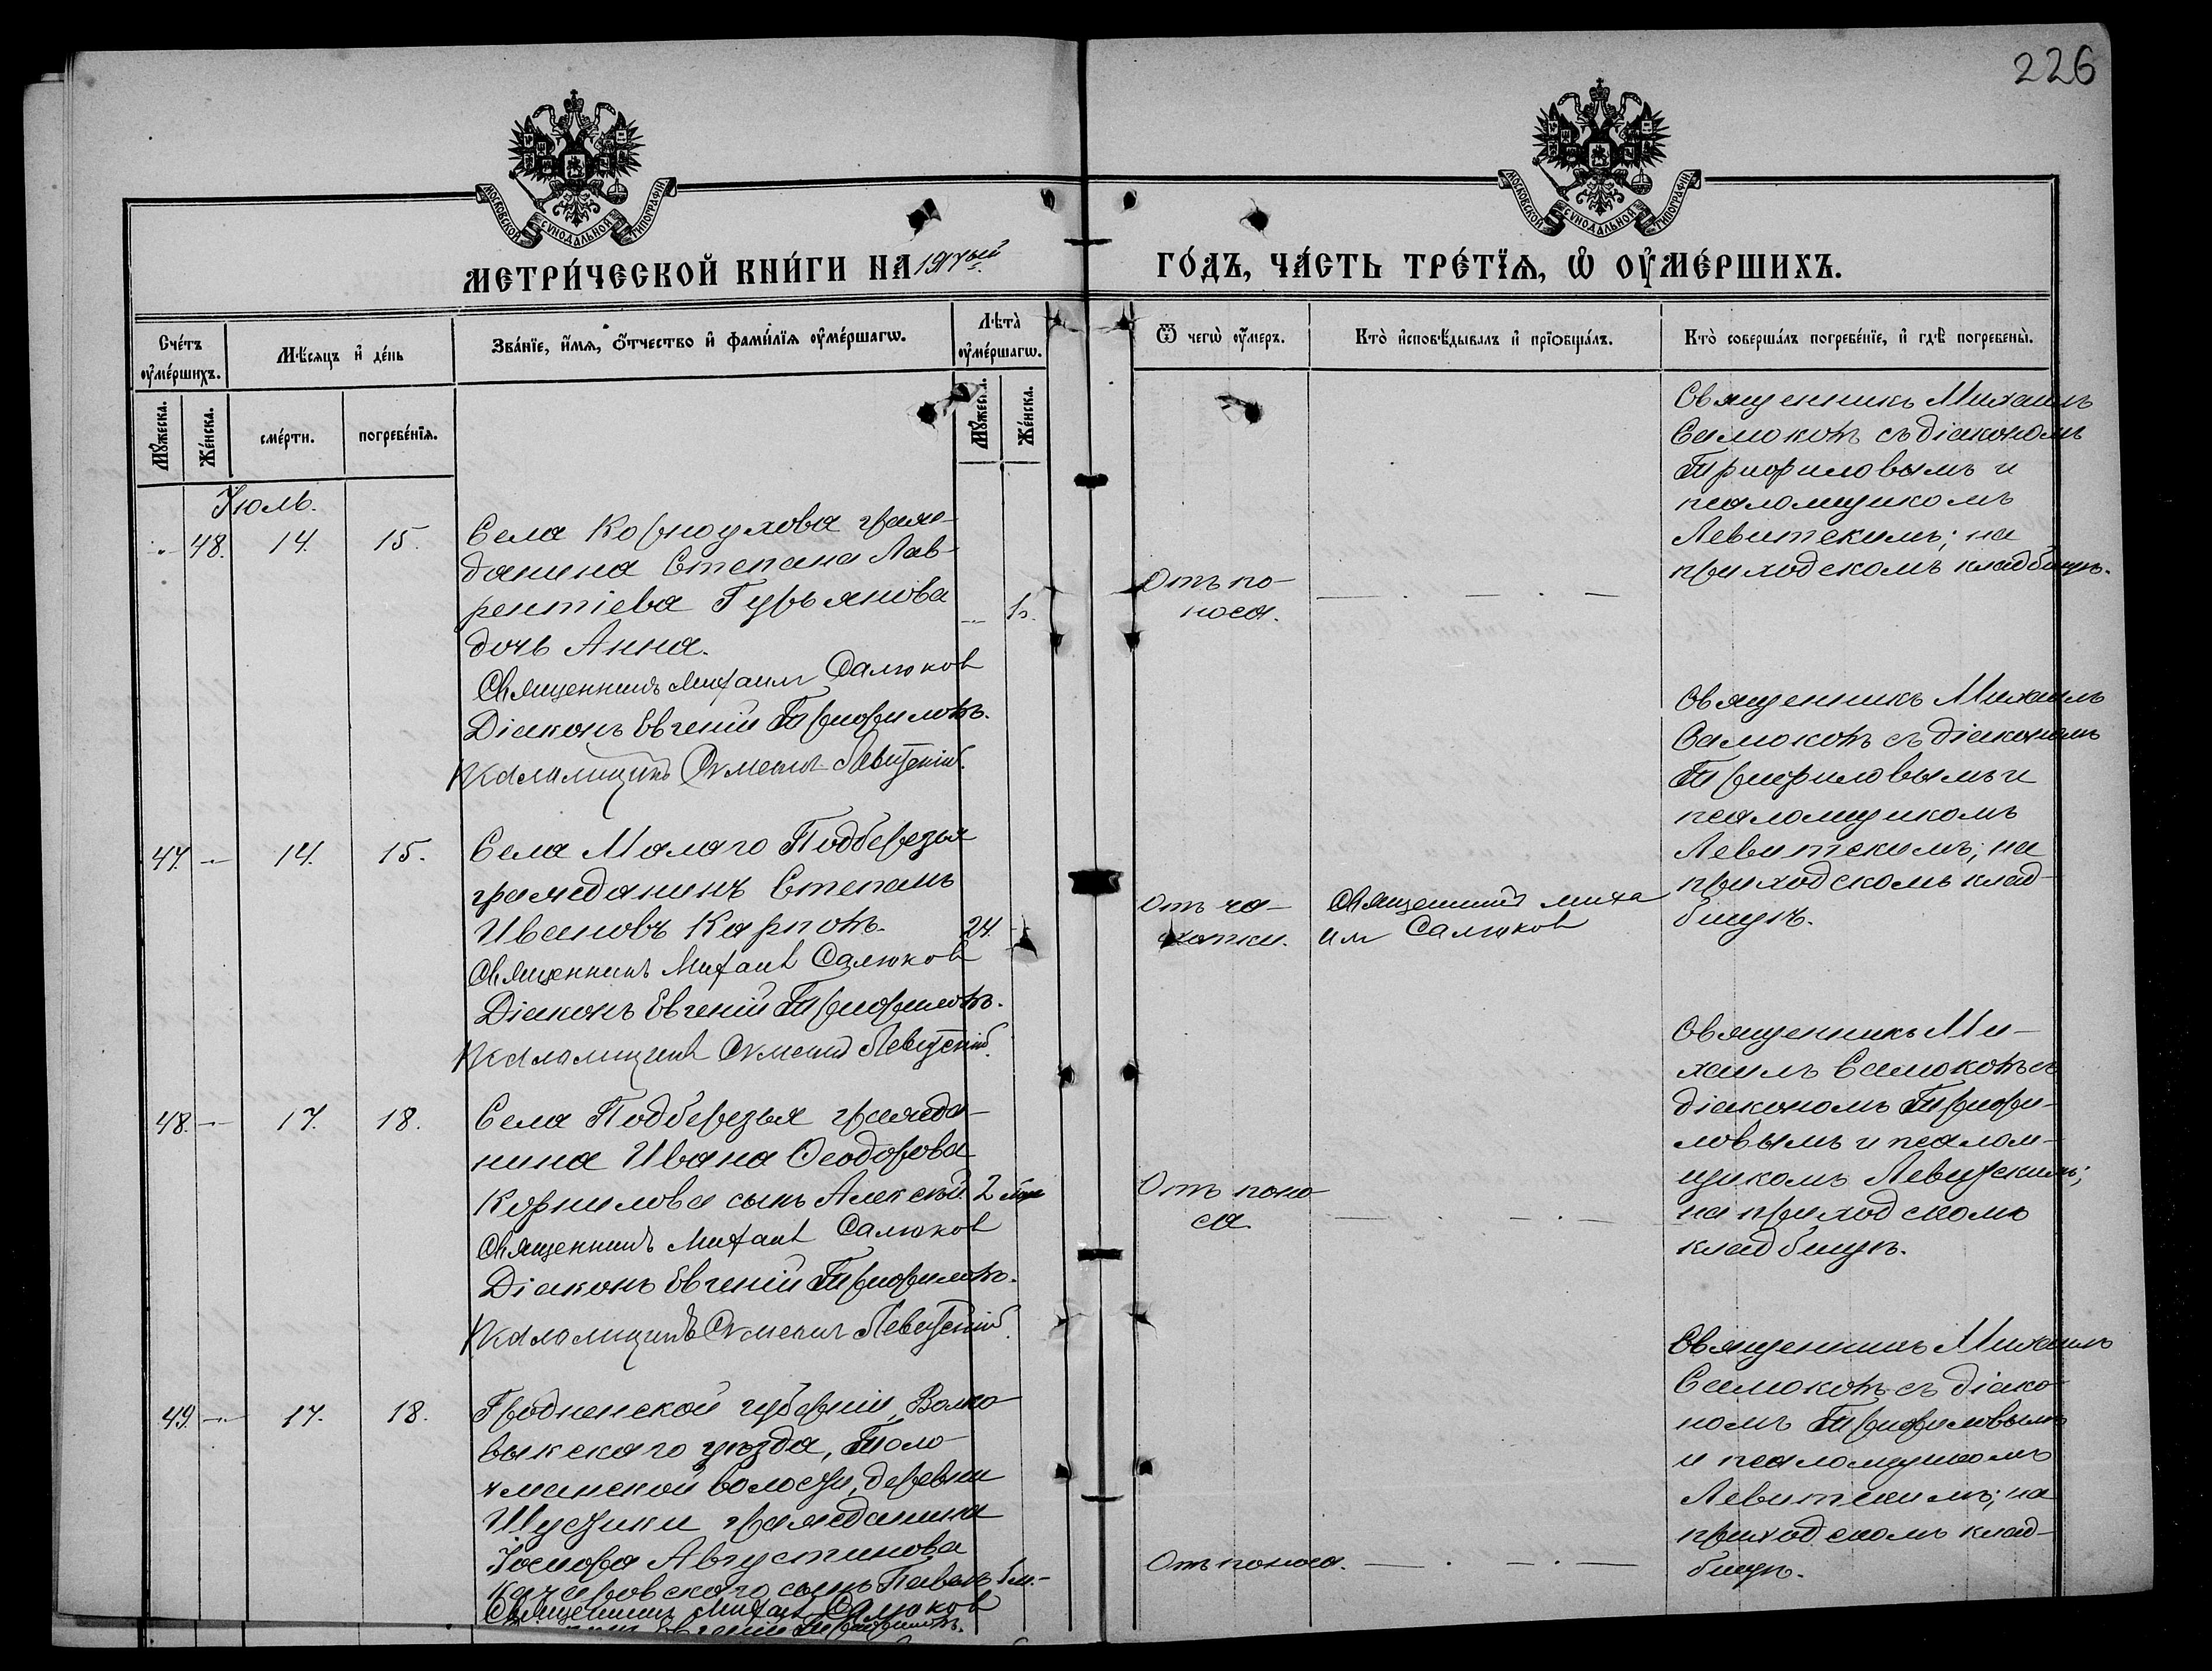 226
МОСКОВСКОЙ СѴНОДАЛЬНОЙ ТИПОГРАФІИ
МОСКОВСКОЙ СѴНОДАЛЬНОЙ ТИПОГРАФІИ
МЕТРИ́ЧЕСКОЙ КНИ́ГИ НА 1917ый ГО́ДЪ, ЧА́СТЬ ТРЕ́ТІѦ, Ѡ ОУМЕ́РШИХЪ.
Сче́тъ оумéршихъ.
Мѣ́сяцъ и де́нь
Зва́нїе, и́мя, о́тчество и фами́лїя оумéршагѡ.
Лѣта̀ оумéршагѡ.
Ѿ чегѡ̀ оу́меръ.
Кто̀ исповѣ́дывалъ и прїобща́лъ.
Кто̀ соверша́лъ погребе́нїе, и гдѣ̀ погребены̀.
Мꙋ́жеска.
Же́нска.
сме́рти.
погребе́нїя.
Мꙋ́жеска.
Же́нска.
Іюль.
48.
14.
15.
Села Корноухова граж-
данина Степана Лав-
рентіева Гурьянова
дочь Анна.
Священникъ Михаил Самоков
Діаконъ Евгеній Трифиловъ.
Псаломщикъ Левитскій.
Отъ по-
носа.
Священникъ Михаилъ
Самоковъ съ діакономъ
Трифиловымъ и
псаломщикомъ
Левитскимъ; на
приходскомъ кладбищѣ.
47.
14.
15.
Села Малаго Подберезья
гражданинъ Степанъ
Ивановъ Карповъ.
24.
Священникъ Михаил Самоков
Діаконъ Евгеній Трифиловъ.
Псаломщикъ Левитскій.
Отъ ча-
хотки.
Священникъ Миха
ил Самоков
Священникъ Михаилъ
Самоковъ съ діакономъ
Трифиловымъ и
псаломщикомъ
Левитскимъ; на
приходскомъ клад-
бищѣ.
48.
17.
18.
Села Подберезья гражда-
нина Ивана Ѳеодорова
Корнилова сынъ Алексѣй
2
Священникъ Михаил Самоков
Діаконъ Евгеній Трифиловъ.
Псаломщикъ Левитскій.
Отъ поно-
са.
Священникъ Ми-
хаилъ Самоковъ съ
діакономъ Трифи-
ловымъ и псалом-
щикомъ Левитскимъ;
на приходскомъ
кладбищѣ.
49.
17.
18.
Гродненской губерніи, Волко-
выскаго уѣзда,
волости, деревни
гражданина
Іосифа Августинова
сынъ Павелъ
6 м.
Священникъ Михаил Самоков
Евгеній Трифиловъ.
Отъ поноса.
Священникъ Михаилъ
Самоковъ съ діако-
номъ Трифиловымъ
и псаломщикомъ
Левитскимъ; на
приходскомъ клад-
бищѣ.